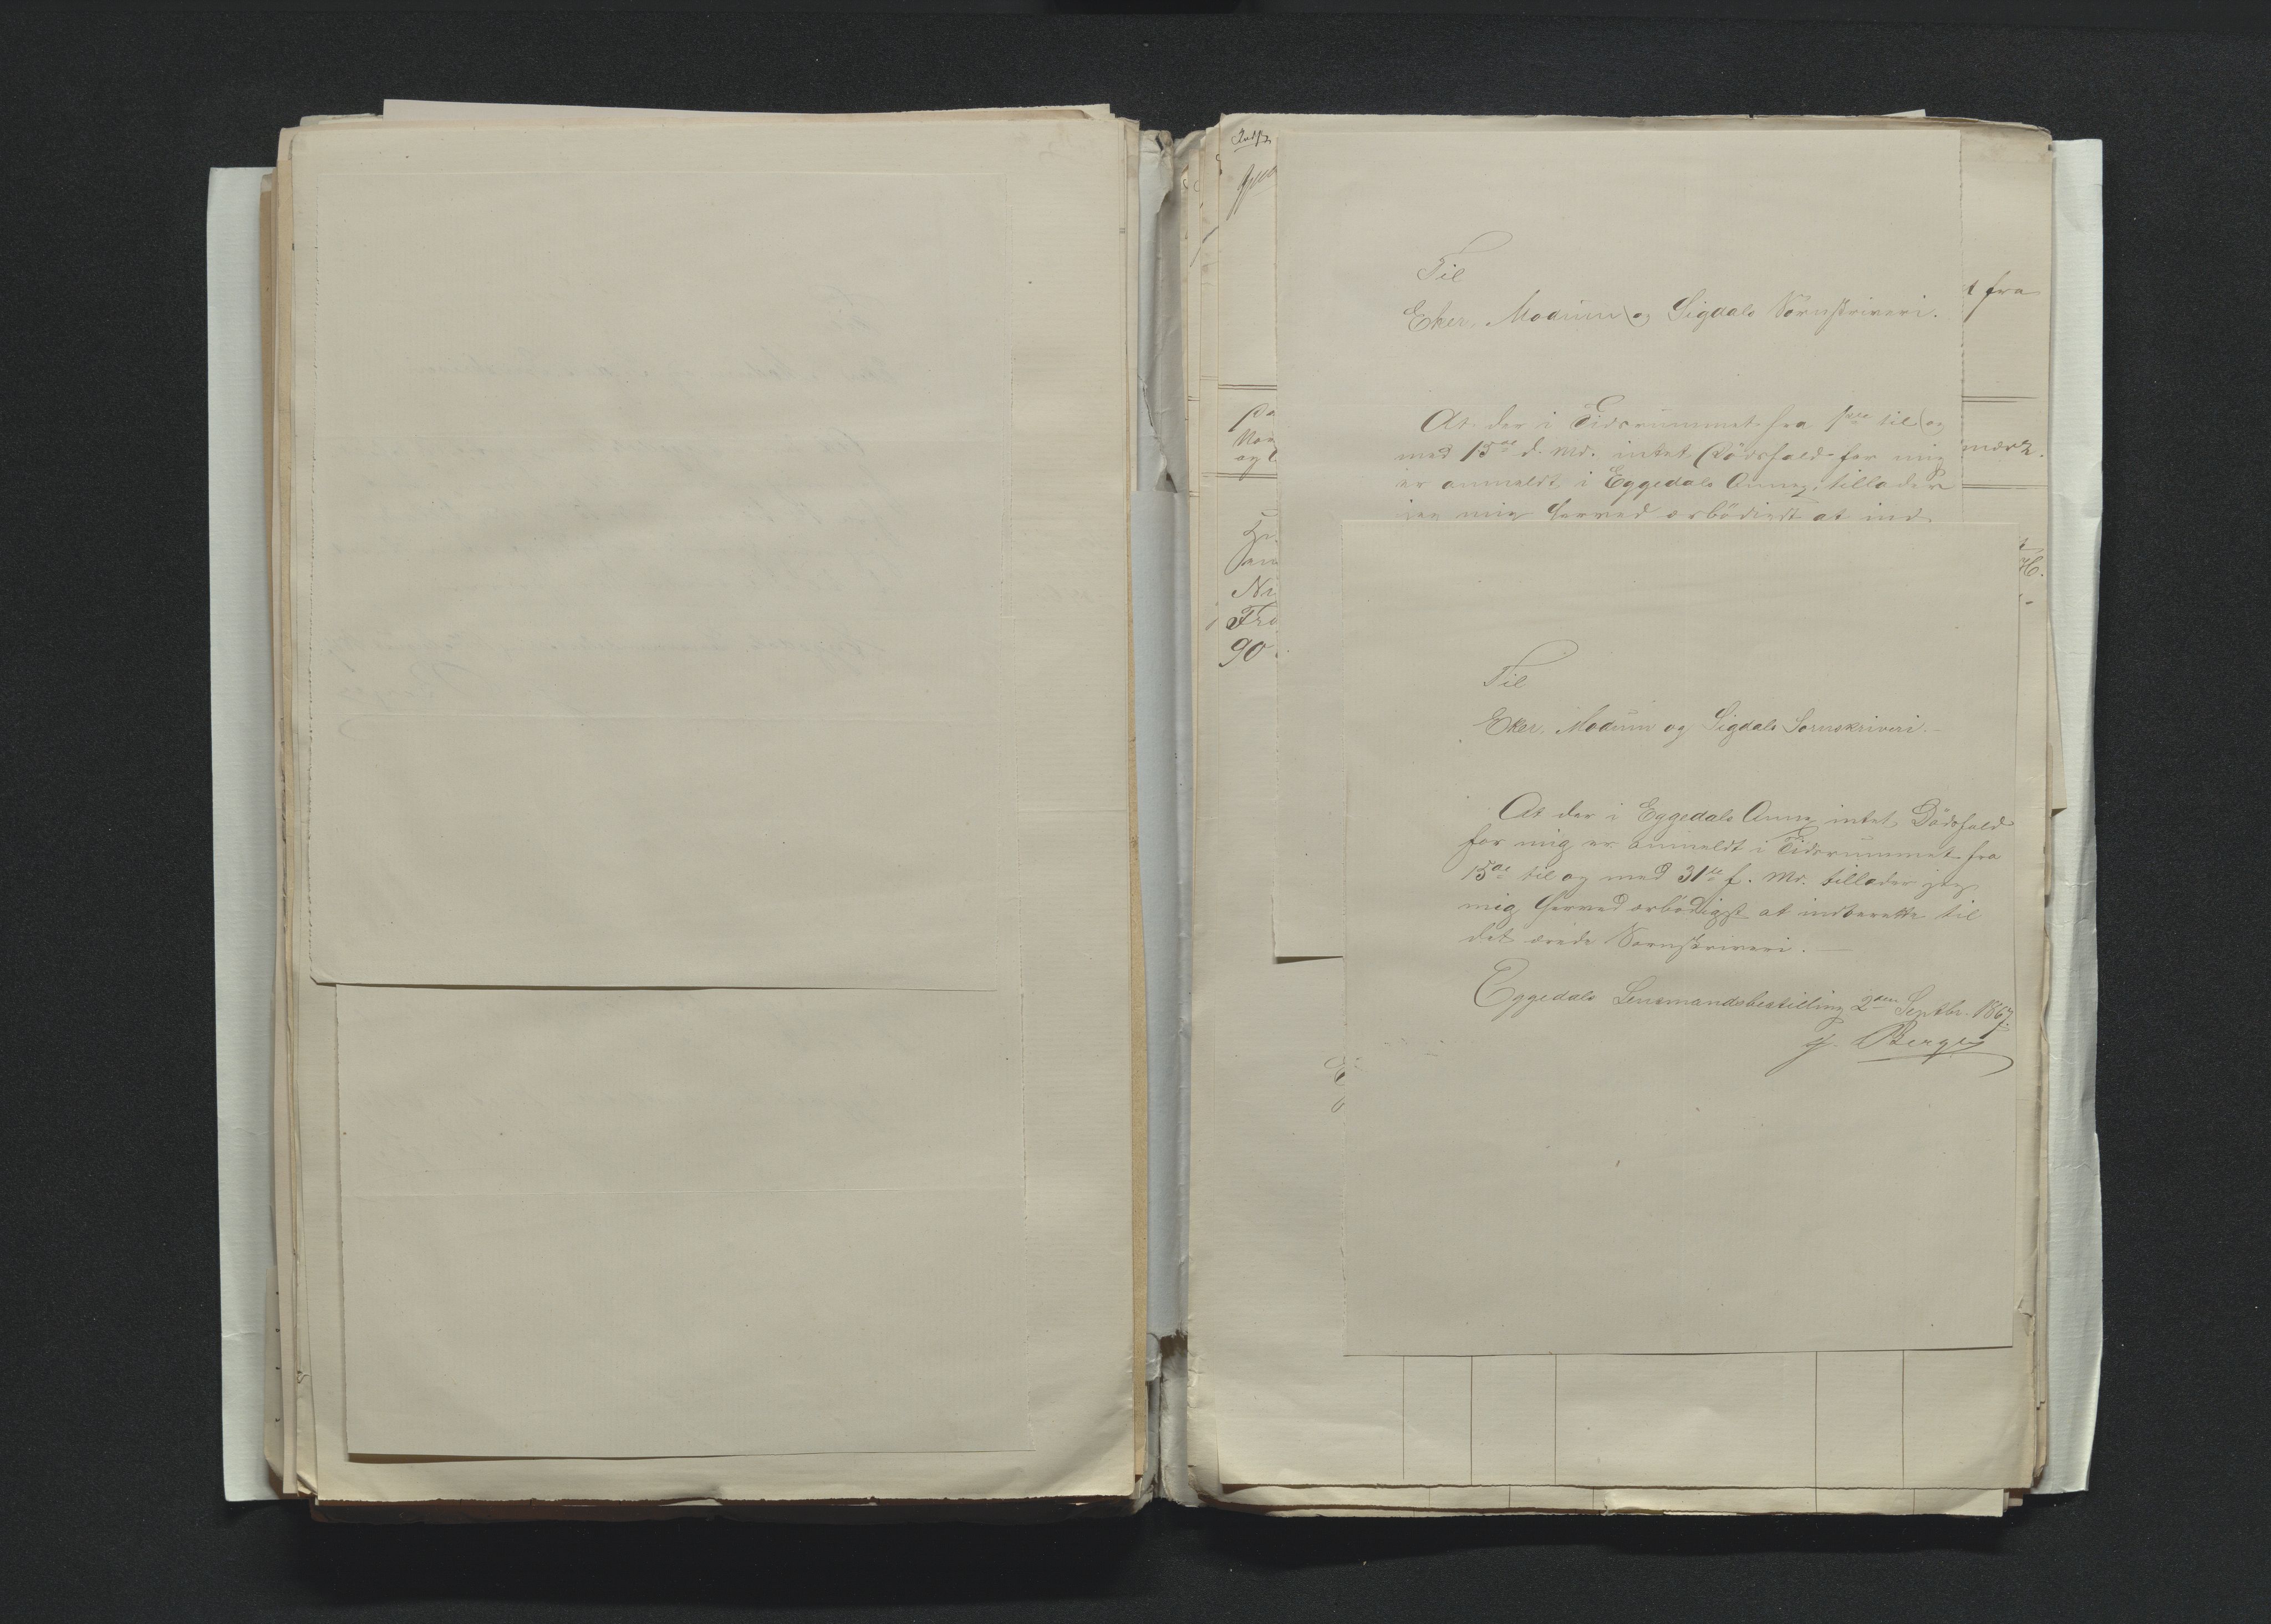 Til
Eker, Modum og Sigdals Sorenskriveri.
At der i Tidsrummet fra 1ste til og
med 15de d. Md. intet Dödsfald for mig
er anmeldt i Eggedals Annex, tillader
jeg mig herved ærbödigst at ind-
Til
Eker, Modum og Sigdals Sorenskriveri.-
At der i Eggedals Annex intet Dödsfald
for mig er anmeldt i Tidsrummet fra
15de til og med 31te f. Md. tillader jeg
mig herved ærbödigst at indberette til
det ærede Sorenskriveri. —
Eggedals Lensmandsbestilling 2den Septbr. 1867.
Berge
t fra
90